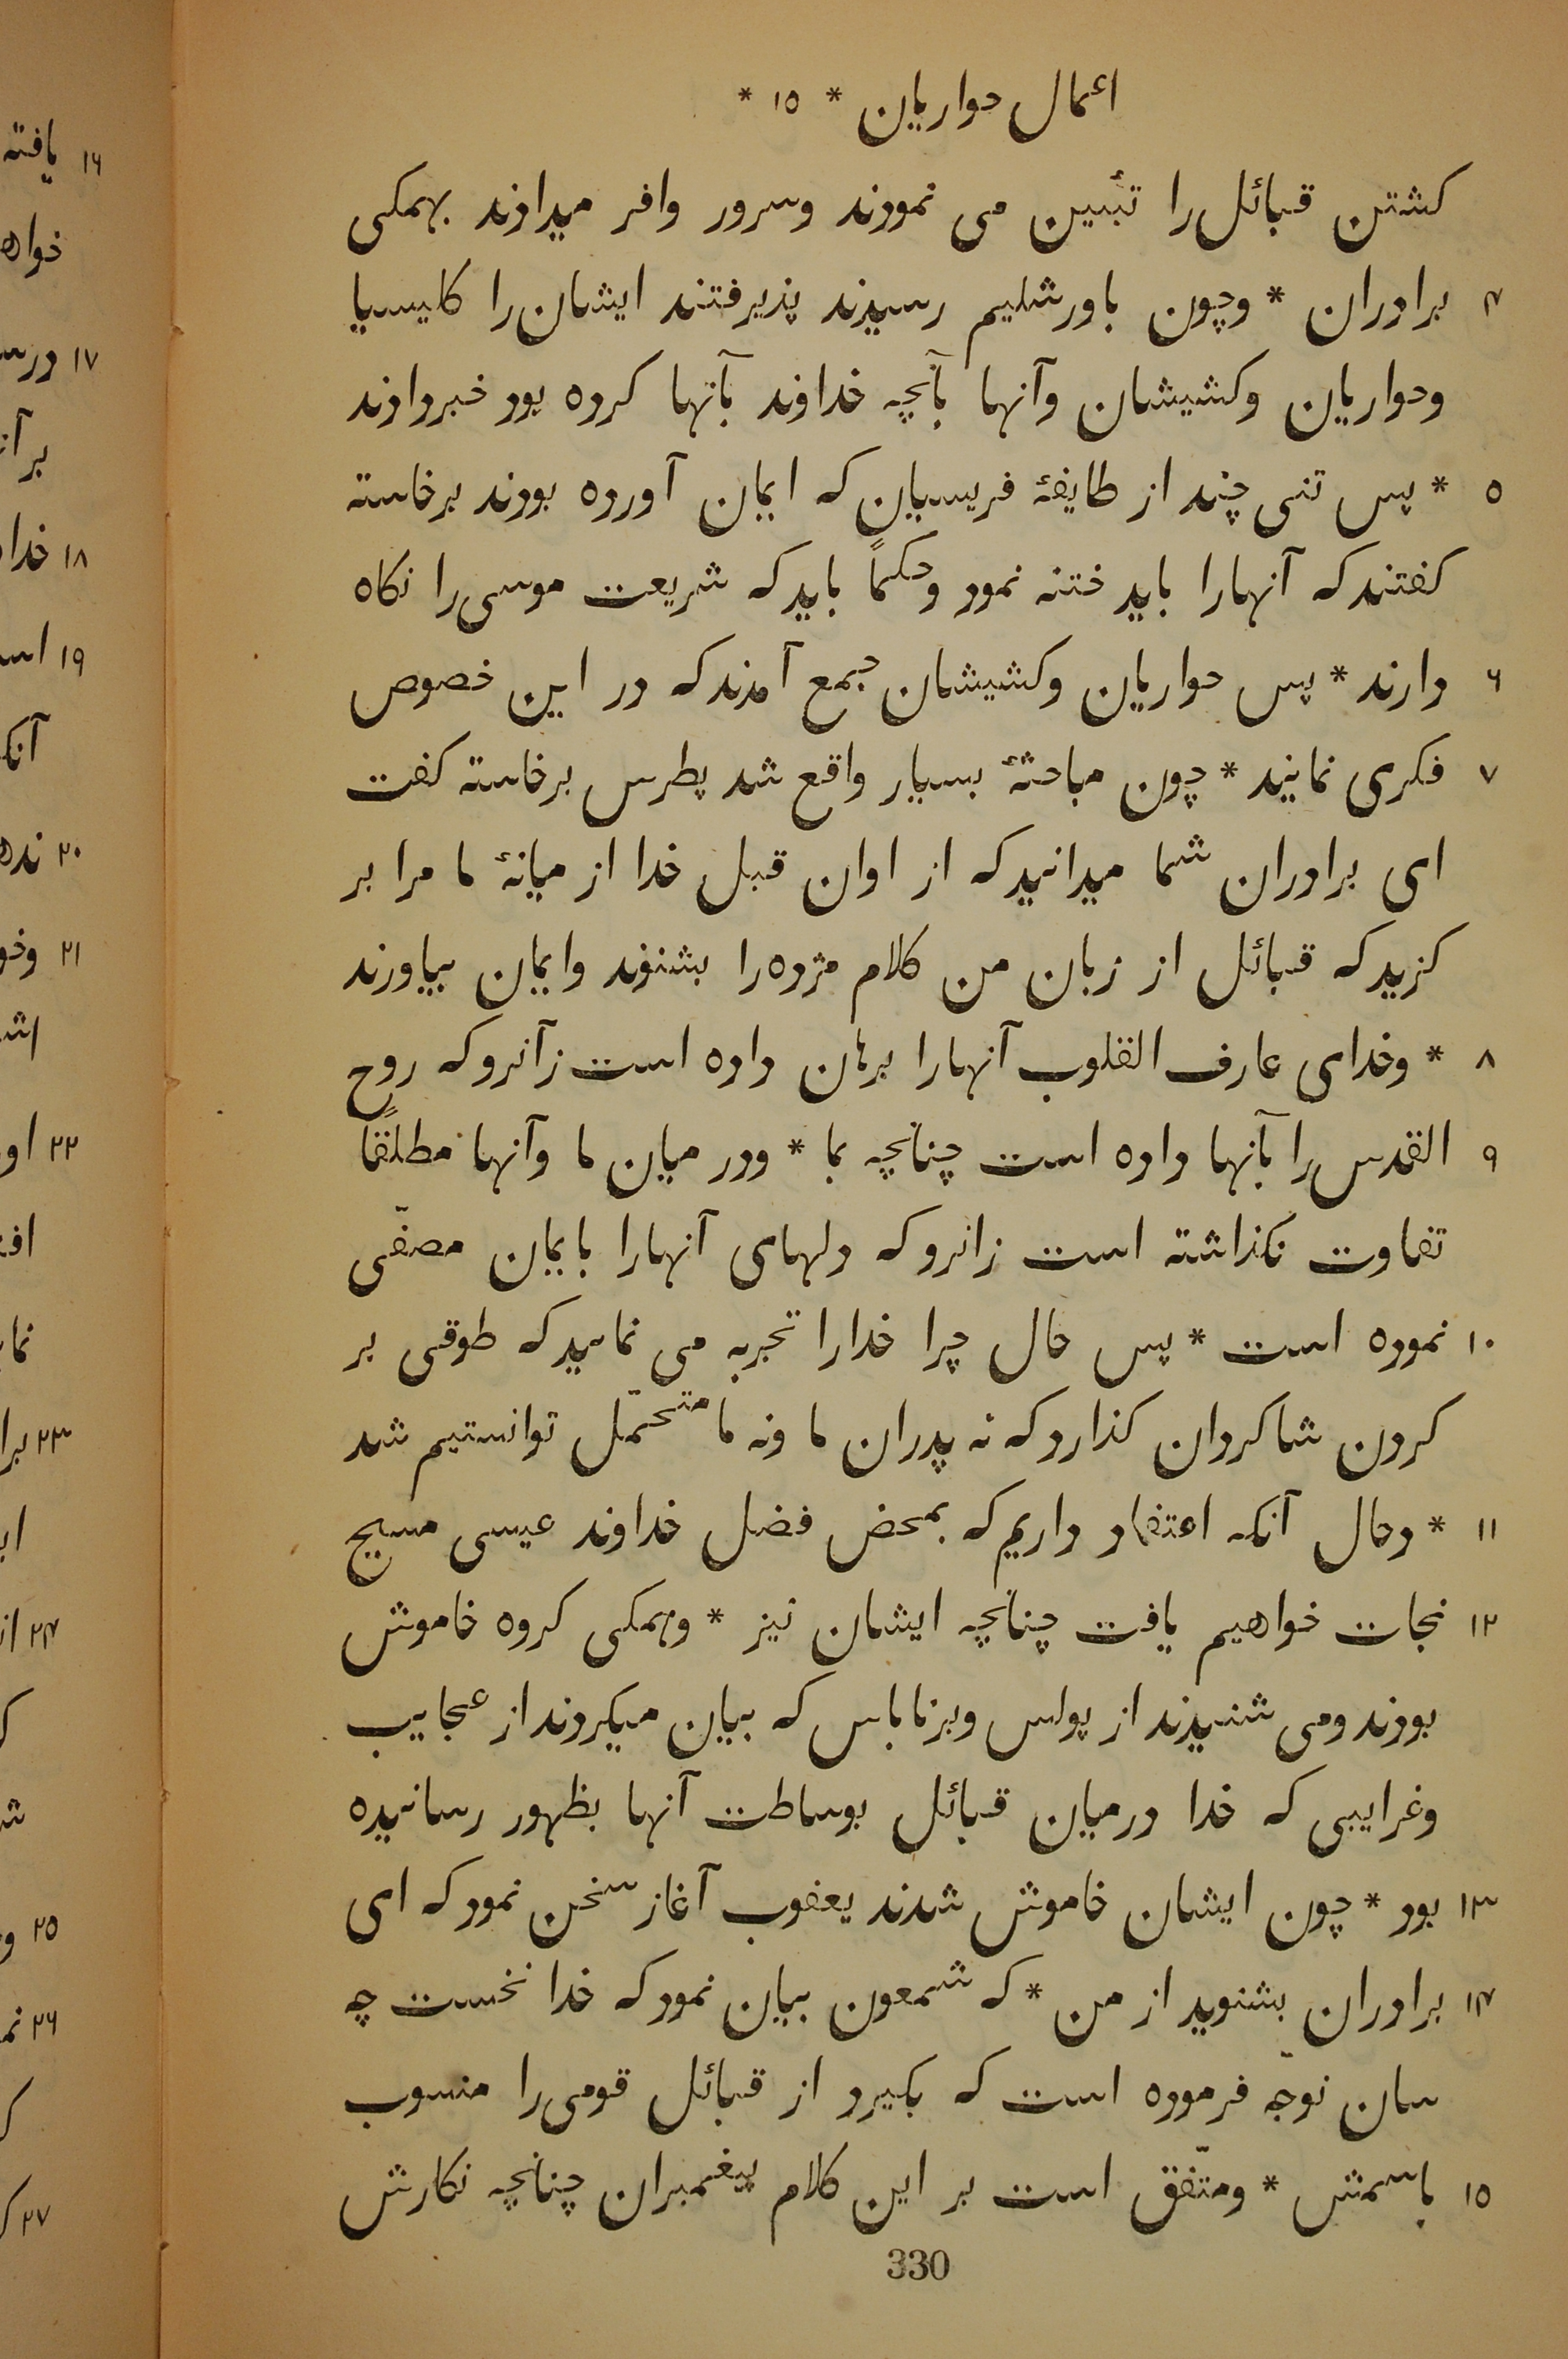 اعمال حواریان * ۱۵ *
کشتن قبائل را تبیین می نمودند وسرور وافر میدادند بهمکی
۴ برادران * وچون باورشلیم رسیدند پذیرفتند ایشان را کلیسیا
وحواریان وکشیشان وآنها بآنچه خداوند بآنها کرده بود خبردادند
۵ * پس تنی چند از طایفهٔ فریسیان که ایمان آورده بودند برخاسته
کفتند که آنهارا باید ختنه نمود وحکماً باید که شریعت موسی را نکاه
۶ دارند * پس حواریان وکشیشان جمع آمدند که در این خصوص
۷ فکری نمایند * چون مباحثهٔ بسیار واقع شد پطرس برخاسته کفت
ای برادران شما میدانید که از اوان قبل خدا از میانهٔ ما مرا بر
کزید که قبائل از زبان من کلام مژده را بشنوند وایمان بیاورند
۸ * وخدای عارف القلوب آنهارا برهان داده است زآنرو که روح
۹ القدس را بآنها داده است چنانچه بما * ودر میان ما وآنها مطلقًا
تفاوت نکذاشته است زانرو که دلهای آنهارا بایمان مصفّی
۱۰ نموده است * پس حال چرا خدارا تجربه می نمایید که طوقی بر
کردن شاکردان کذارد که نه پدران ما ونه ما متحمّل توانستیم شد
۱۱ * وحال آنکه اعتقاد داریم که بمحض فضل خداوند عیسی مسیح
۱۲ نجات خواهیم یافت چنانچه ایشان نیز * وهمکی کروه خاموش
بودند ومی شنیدند از پولس وبرناباس که بیان میکردند از عجایب
وغرایبی که خدا درمیان قبائل بوساطت آنها بظهور رسانیده
۱۳ بود * چون ایشان خاموش شدند یعقوب آغاز سخن نمود که ای
۱۴ برادران بشنوید از من * که شمعون بیان نمود که خدا نخست چه
سان توجّه فرموده است که بکیرد از قبائل قومی را منسوب
۱۵ باسمش * ومتّفق است بر این کلام پیغمبران چنانچه نکارش
330
۱۶ یافته
۱۷
۱۸
۱۹
۲۰
۲۱
۲۲
۲۳
۲۴
۲۵
۲۶
۲۷